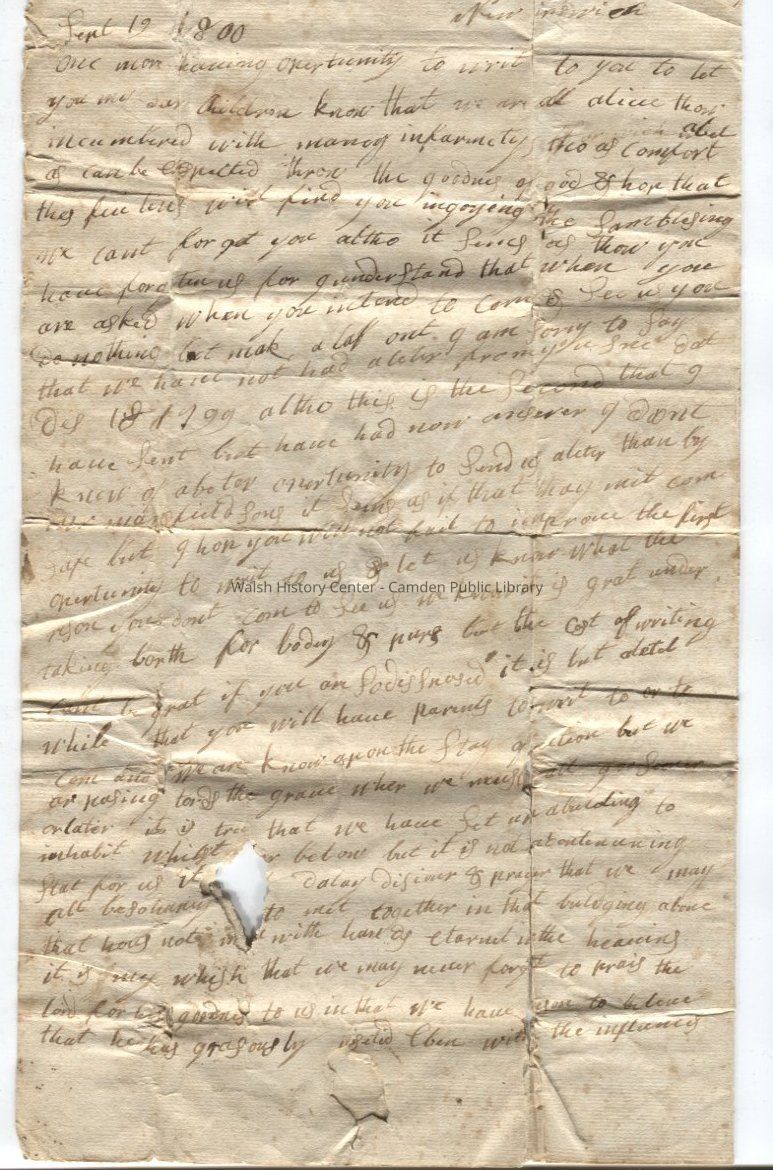 Sept 19 1800
One more haveing opertunity to writ to you to let
you my dear Children know that we are all alive thow
incumbered with manoy infarmetys tho as Comfort abel
as can be Expected throw the goodnes of god & hop that
thes few lines will find you ingoying the Samblesing
we cant forget you altho it Sems as thow you
have forgoten us for I understand that when you
are asked when you intend to Com & See us you
do nothing but mak a laf out I am Sorry to Say
that we have not had a leter from you
Des 18 1799 altho this is the Second that I
have Sent but have had now answer I dont
know of a beter opertunity to Send us a leter than by
Sons it Sems as if that thay mit com
Safe but I hop you will not fail to improve the first
opertunity to writ to us & let us know what the
reson you dont com to See us we know it is grat under
taking borth for bodey & purs but the Cost of writing
cant be grat if you are So disposed it is but a letel
while that you will have parents to writ to or to
Com and We are know apon the Stag of action but we
ar pasing tords the grave wher we must all go Soner
or later it is tru that we have Set up abuelding to
inhabit whilst her below but it is not a contenuening
Stat for us it dalay disiver & prayer that we may
all be to met together in that buldging above
that hous not with hands eternel in the heavens
it is my whish that we may never forget to prais the
lord for his goodnes to us in that we have reson to beleve
that he has grasously Eben with the
Walsh History Center - Camden Public Library